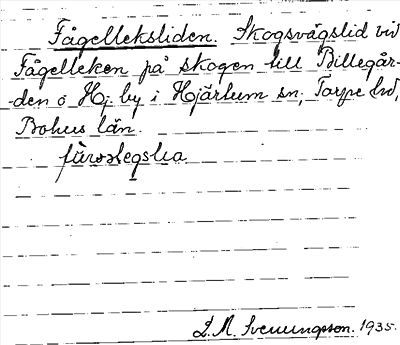 Fågelleksliden. Skogsvägslid vid
Fågelleken på skogen till Billegår-
-den o Hj. by i Hjärtum sn, Torpe hd,
Bohus län.
S. M. Svenungsson. 1935.